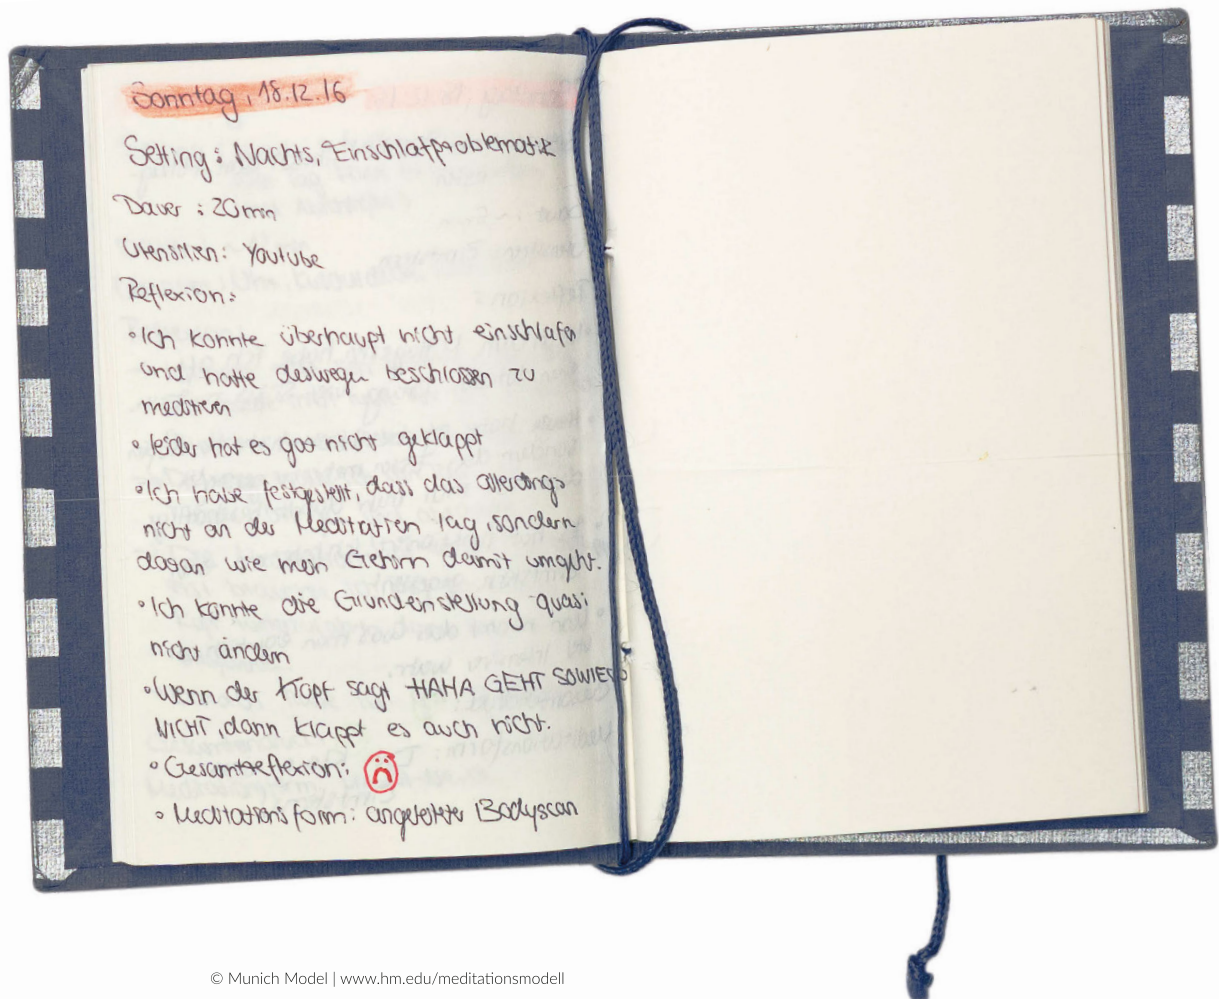 Sonntag, 18.12.16
Setting: Nachts, Einschlafproblematik
Dauer: 20min
Utensilien: Youtube
Reflexion:
• Ich konnte überhaupt nicht einschlafen
und hatte deswegen beschlossen zu
meditieren
• leider hat es gar nicht geklappt
• Ich habe festgestellt, dass das allerdings
nicht an der Meditation lag, sondern
daran wie mein Gehirn damit umgeht.
• Ich konnte die Grundeinstellung quasi
nicht ändern
• Wenn der Kopf sagt HAHA GEHT SOWIESO
NICHT, dann klappt es auch nicht.
• Gesamtreflexion:
• Meditationsform: angeleiteter Bodyscan
© Munich Model | www.hm.edu/meditationsmodell